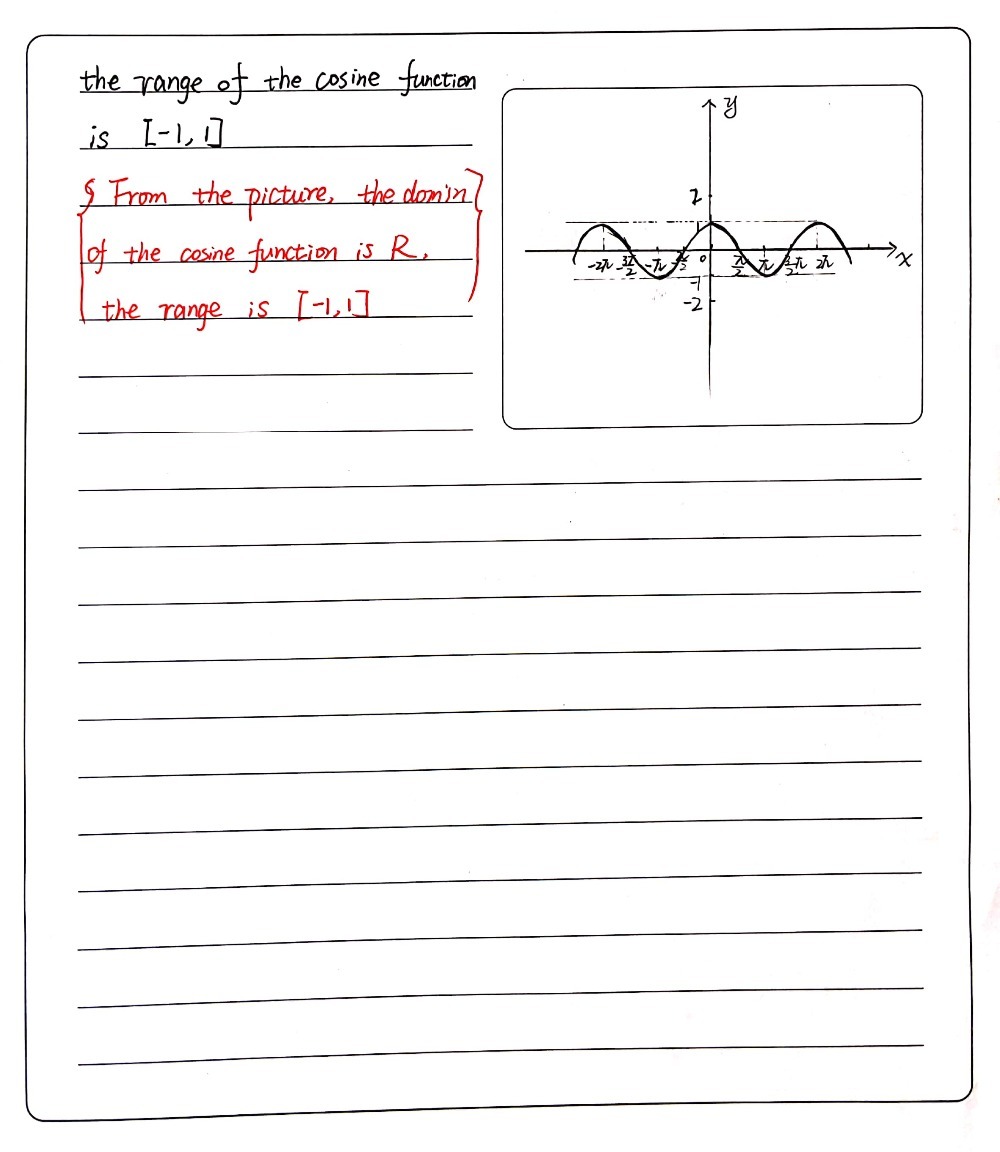 the range of the cosine function
is [-1, 1]
From the picture, the domin
of the cosine function is R,
the range is [-1, 1]
y
2
1
-2π -3π/2 -π -π/2 0 π/2 π 3/2π 2π x
-1
-2